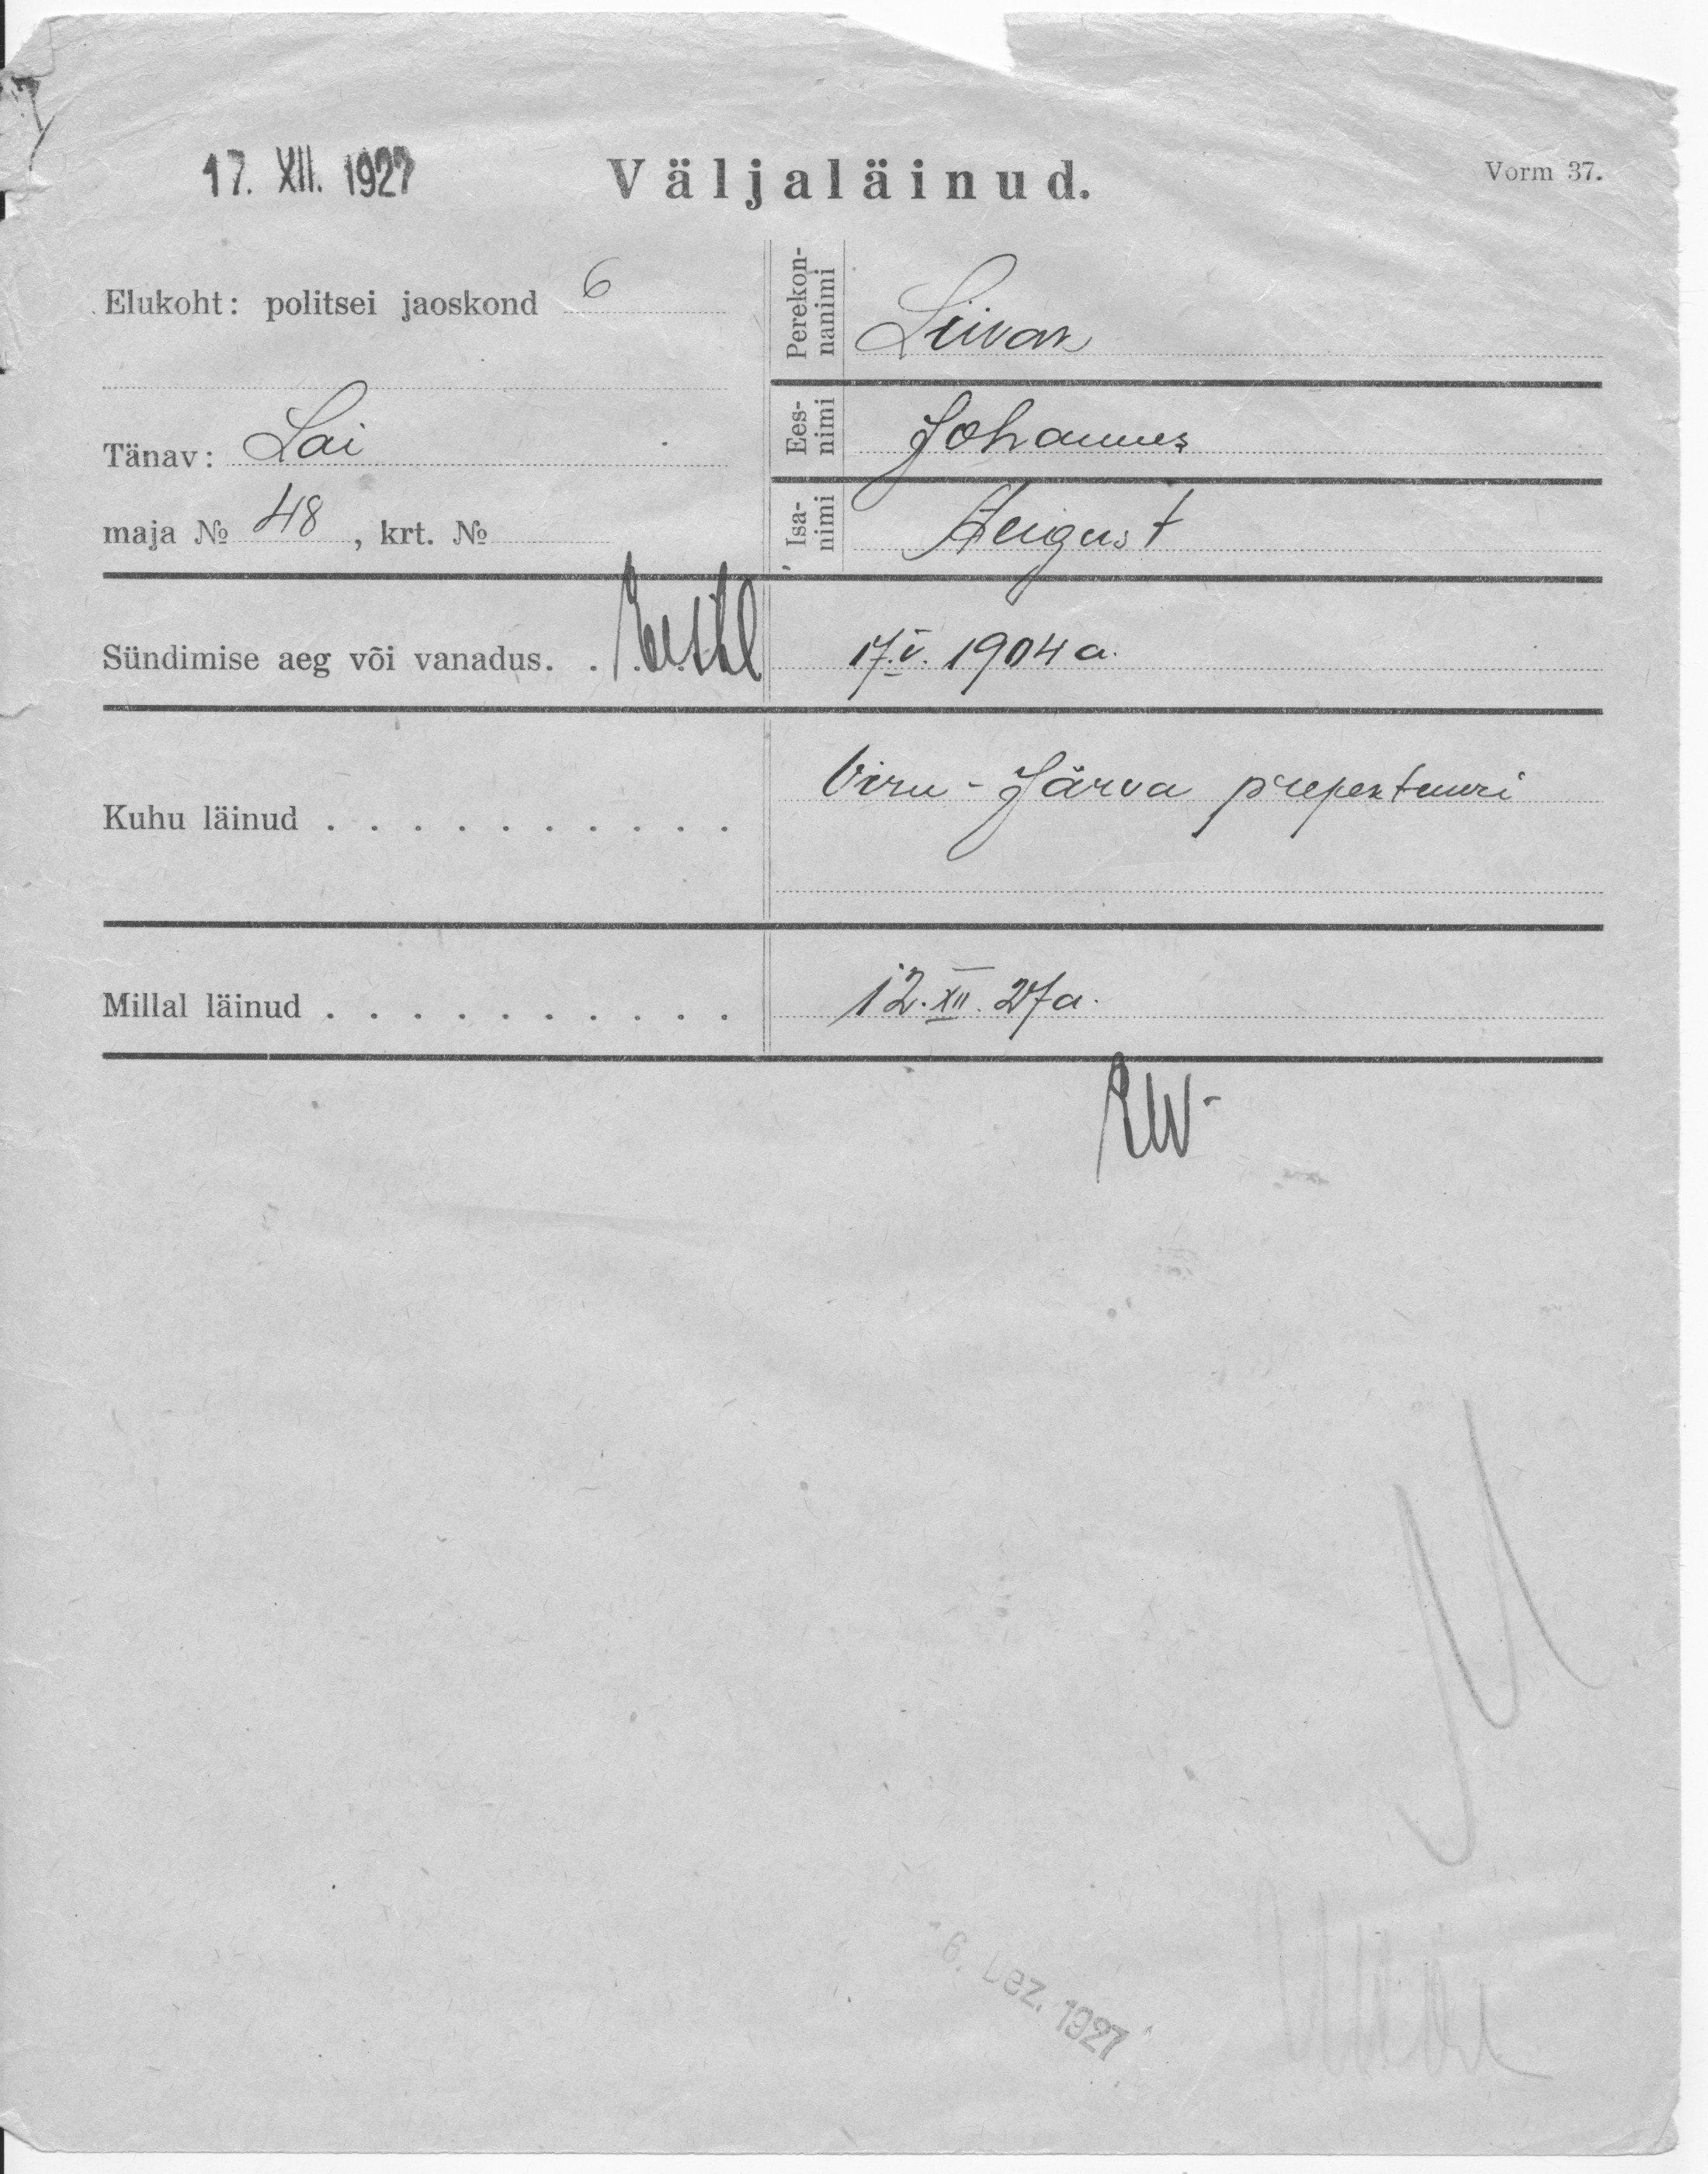 17. XII. 1927
Väljaläinud.
Vorm 37.
Elukoht: politsei jaoskond 6
Tänav: Lai
maja № 48, krt. №
Perekon-
nanimi
Liivak
Ees-
nimi
Johannes
Isa-
nimi
August
Sündimise aeg või vanadus. . 17.V. 1904 a.
Kuhu läinud . . . . . . . . . . Viru-Järva prefektuuri
Millal läinud . . . . . . . . . . 12. XII. 27 a.
6. Dez. 1927